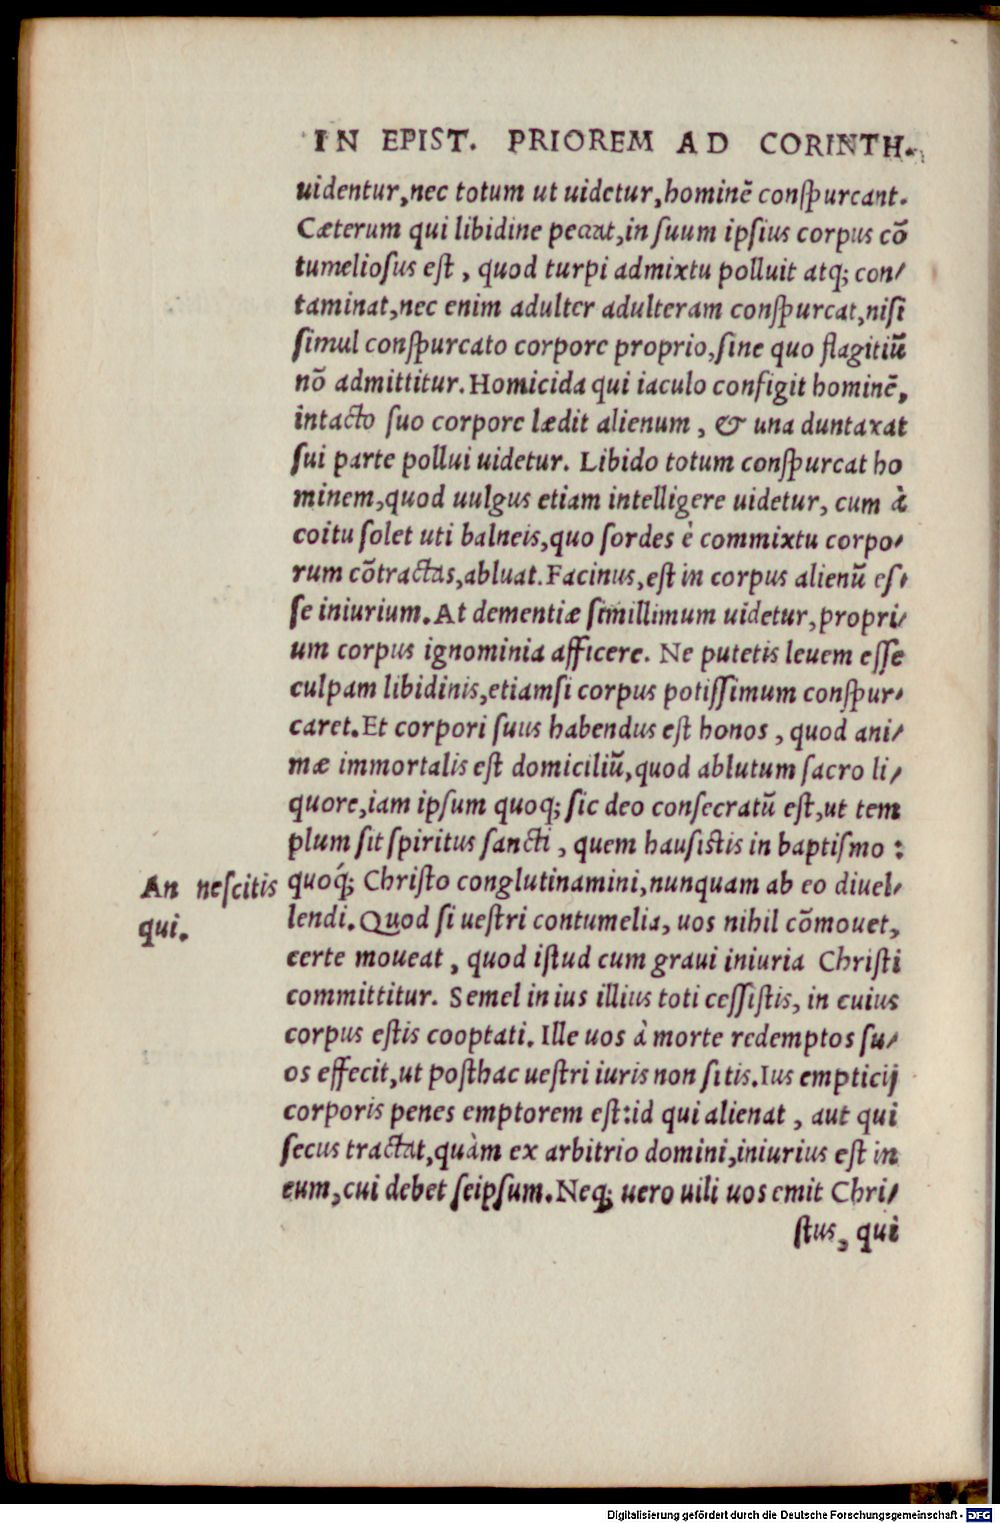 IN EPIST. PRIOREM AD CORINTH.
uidentur, nec totum ut uidetur, hominē conspurcant.
Cæterum qui libidine peccat, in suum ipsius corpus cō
tumeliosus est, quod turpi admixtu polluit atq; con/
taminat, nec enim adulter adulteram conspurcat, nisi
simul conspurcato corpore proprio, sine quo flagitiū
nō admittitur. Homicida qui iaculo configit hominē,
intacto suo corpore lædit alienum, & una duntaxat
sui parte pollui uidetur. Libido totum conspurcat ho
minem, quod uulgus etiam intelligere uidetur, cum à
coitu solet uti balneis, quo sordes è commixtu corpo/
rum cōtractas, abluat. Facinus, est in corpus alienū es/
se iniurium. At dementiæ simillimum uidetur, propri/
um corpus ignominia afficere. Ne putetis leuem esse
culpam libidinis, etiamsi corpus potissimum conspur/
caret. Et corpori suus habendus est honos, quod ani/
mæ immortalis est domiciliū, quod ablutum sacro li/
quore, iam ipsum quoq; sic deo consecratū est, ut tem
plum sit spiritus sancti, quem hausistis in baptismo:
An nescitis
qui.
quoq́; Christo conglutinamini, nunquam ab eo diuel/
lendi. Quod si uestri contumelia, uos nihil cōmouet,
certe moueat, quod istud cum graui iniuria Christi
committitur. Semel in ius illius toti cessistis, in cuius
corpus estis cooptati. Ille uos à morte redemptos su/
os effecit, ut posthac uestri iuris non sitis. Ius empticij
corporis penes emptorem est: id qui alienat, aut qui
secus tractat, quàm ex arbitrio domini, iniurius est in
eum, cui debet seipsum. Neq; uero uili uos emit Chri/
stus, qui
Digitalisierung gefördert durch die Deutsche Forschungsgemeinschaft - DFG